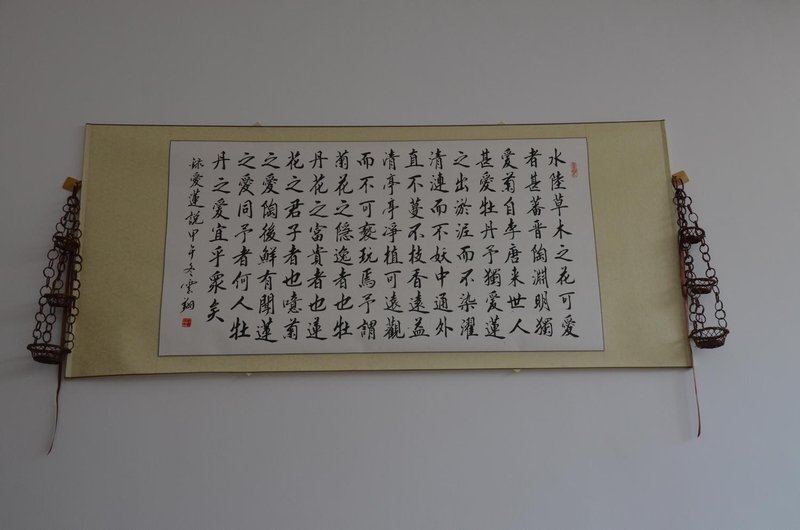 水陸草木之花可愛
者甚蕃晋陶淵明獨
愛菊自李唐来世人
甚愛牡丹予獨愛蓮
之出淤泥而不染濯
清漣而不妖中通外
直不蔓不枝香遠益
清亭亭淨植可遠觀
而不可褻玩焉予謂
菊花之隱逸者也牡
丹花之富貴者也蓮
花之君子者也噫菊
之愛陶後鮮有聞蓮
之愛同予者何人牡
丹之愛宜乎衆矣
錄愛蓮說甲午冬雲翔